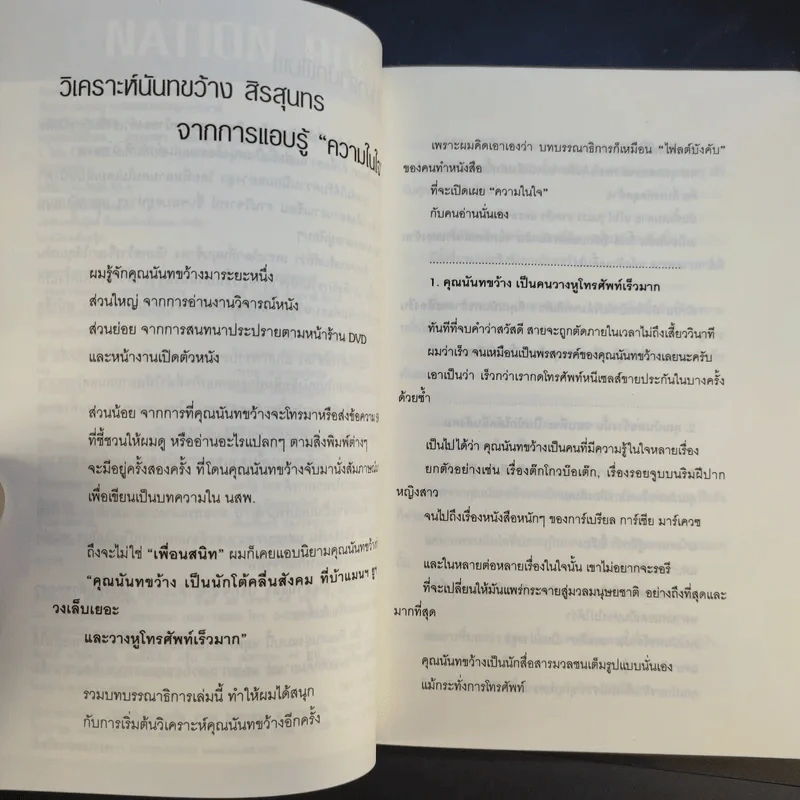 วิเคราะห์นันทขว้าง สิรสุนทร
จากการแอบรู้ “ความในใจ
ผมรู้จักคุณนันทขว้างมาระยะหนึ่ง
ส่วนใหญ่ จากการอ่านงานวิจารณ์หนัง
ส่วนย่อย จากการสนทนาประปรายตามหน้าร้าน DVD
และหน้างานเปิดตัวหนัง
ส่วนน้อย จากการที่คุณนันทขว้างจะโทรมาหรือส่งข้อความ
ที่ชี้ชวนให้ผมดู หรืออ่านอะไรแปลกๆ ตามสิ่งพิมพ์ต่างๆ
จะมีอยู่ครั้งสองครั้ง ที่โดนคุณนันทขว้างจับมานั่งสัมภาษณ์
เพื่อเขียนเป็นบทความใน นสพ.
ถึงจะไม่ใช่ “เพื่อนสนิท” ผมก็เคยแอบนิยามคุณนันทขว้าง
“คุณนันทขว้าง เป็นนักโต้คลื่นสังคม ที่บ้าแมนฯ ยู
วงเล็บเยอะ
และวางหูโทรศัพท์เร็วมาก”
รวมบทบรรณาธิการเล่มนี้ ทำให้ผมได้สนุก
กับการเริ่มต้นวิเคราะห์คุณนันทขว้างอีกครั้ง
เพราะผมคิดเอาเองว่า บทบรรณาธิการก็เหมือน “ไฟลต์บังคับ”
ของคนทำหนังสือ
ที่จะเปิดเผย “ความในใจ”
กับคนอ่านนั่นเอง
1. คุณนันทขว้าง เป็นคนวางหูโทรศัพท์เร็วมาก
ทันทีที่จบคำว่าสวัสดี สายจะถูกตัดภายในเวลาไม่ถึงเสี้ยววินาที
ผมว่าเร็ว จนเหมือนเป็นพรสวรรค์ของคุณนันทขว้างเลยนะครับ
เอาเป็นว่า เร็วกว่าเรากดโทรศัพท์หนีเซลส์ขายประกันในบางครั้ง
ด้วยซ้ำ
เป็นไปได้ว่า คุณนันทขว้างเป็นคนที่มีความรู้ในใจหลายเรื่อง
ยกตัวอย่างเช่น เรื่องตึกโกวบ๊อเต๊ก, เรื่องรอยจูบบนริมฝีปาก
หญิงสาว
จนไปถึงเรื่องหนังสือหนักๆ ของการ์เบรียล การ์เซีย มาร์เควซ
และในหลายต่อหลายเรื่องในใจนั้น เขาไม่อยากจะรอรี
ที่จะเปลี่ยนให้มันแพร่กระจายสู่มวลมนุษยชาติ อย่างถึงที่สุดและ
มากที่สุด
คุณนันทขว้างเป็นนักสื่อสารมวลชนเต็มรูปแบบนั่นเอง
แม้กระทั่งการโทรศัพท์